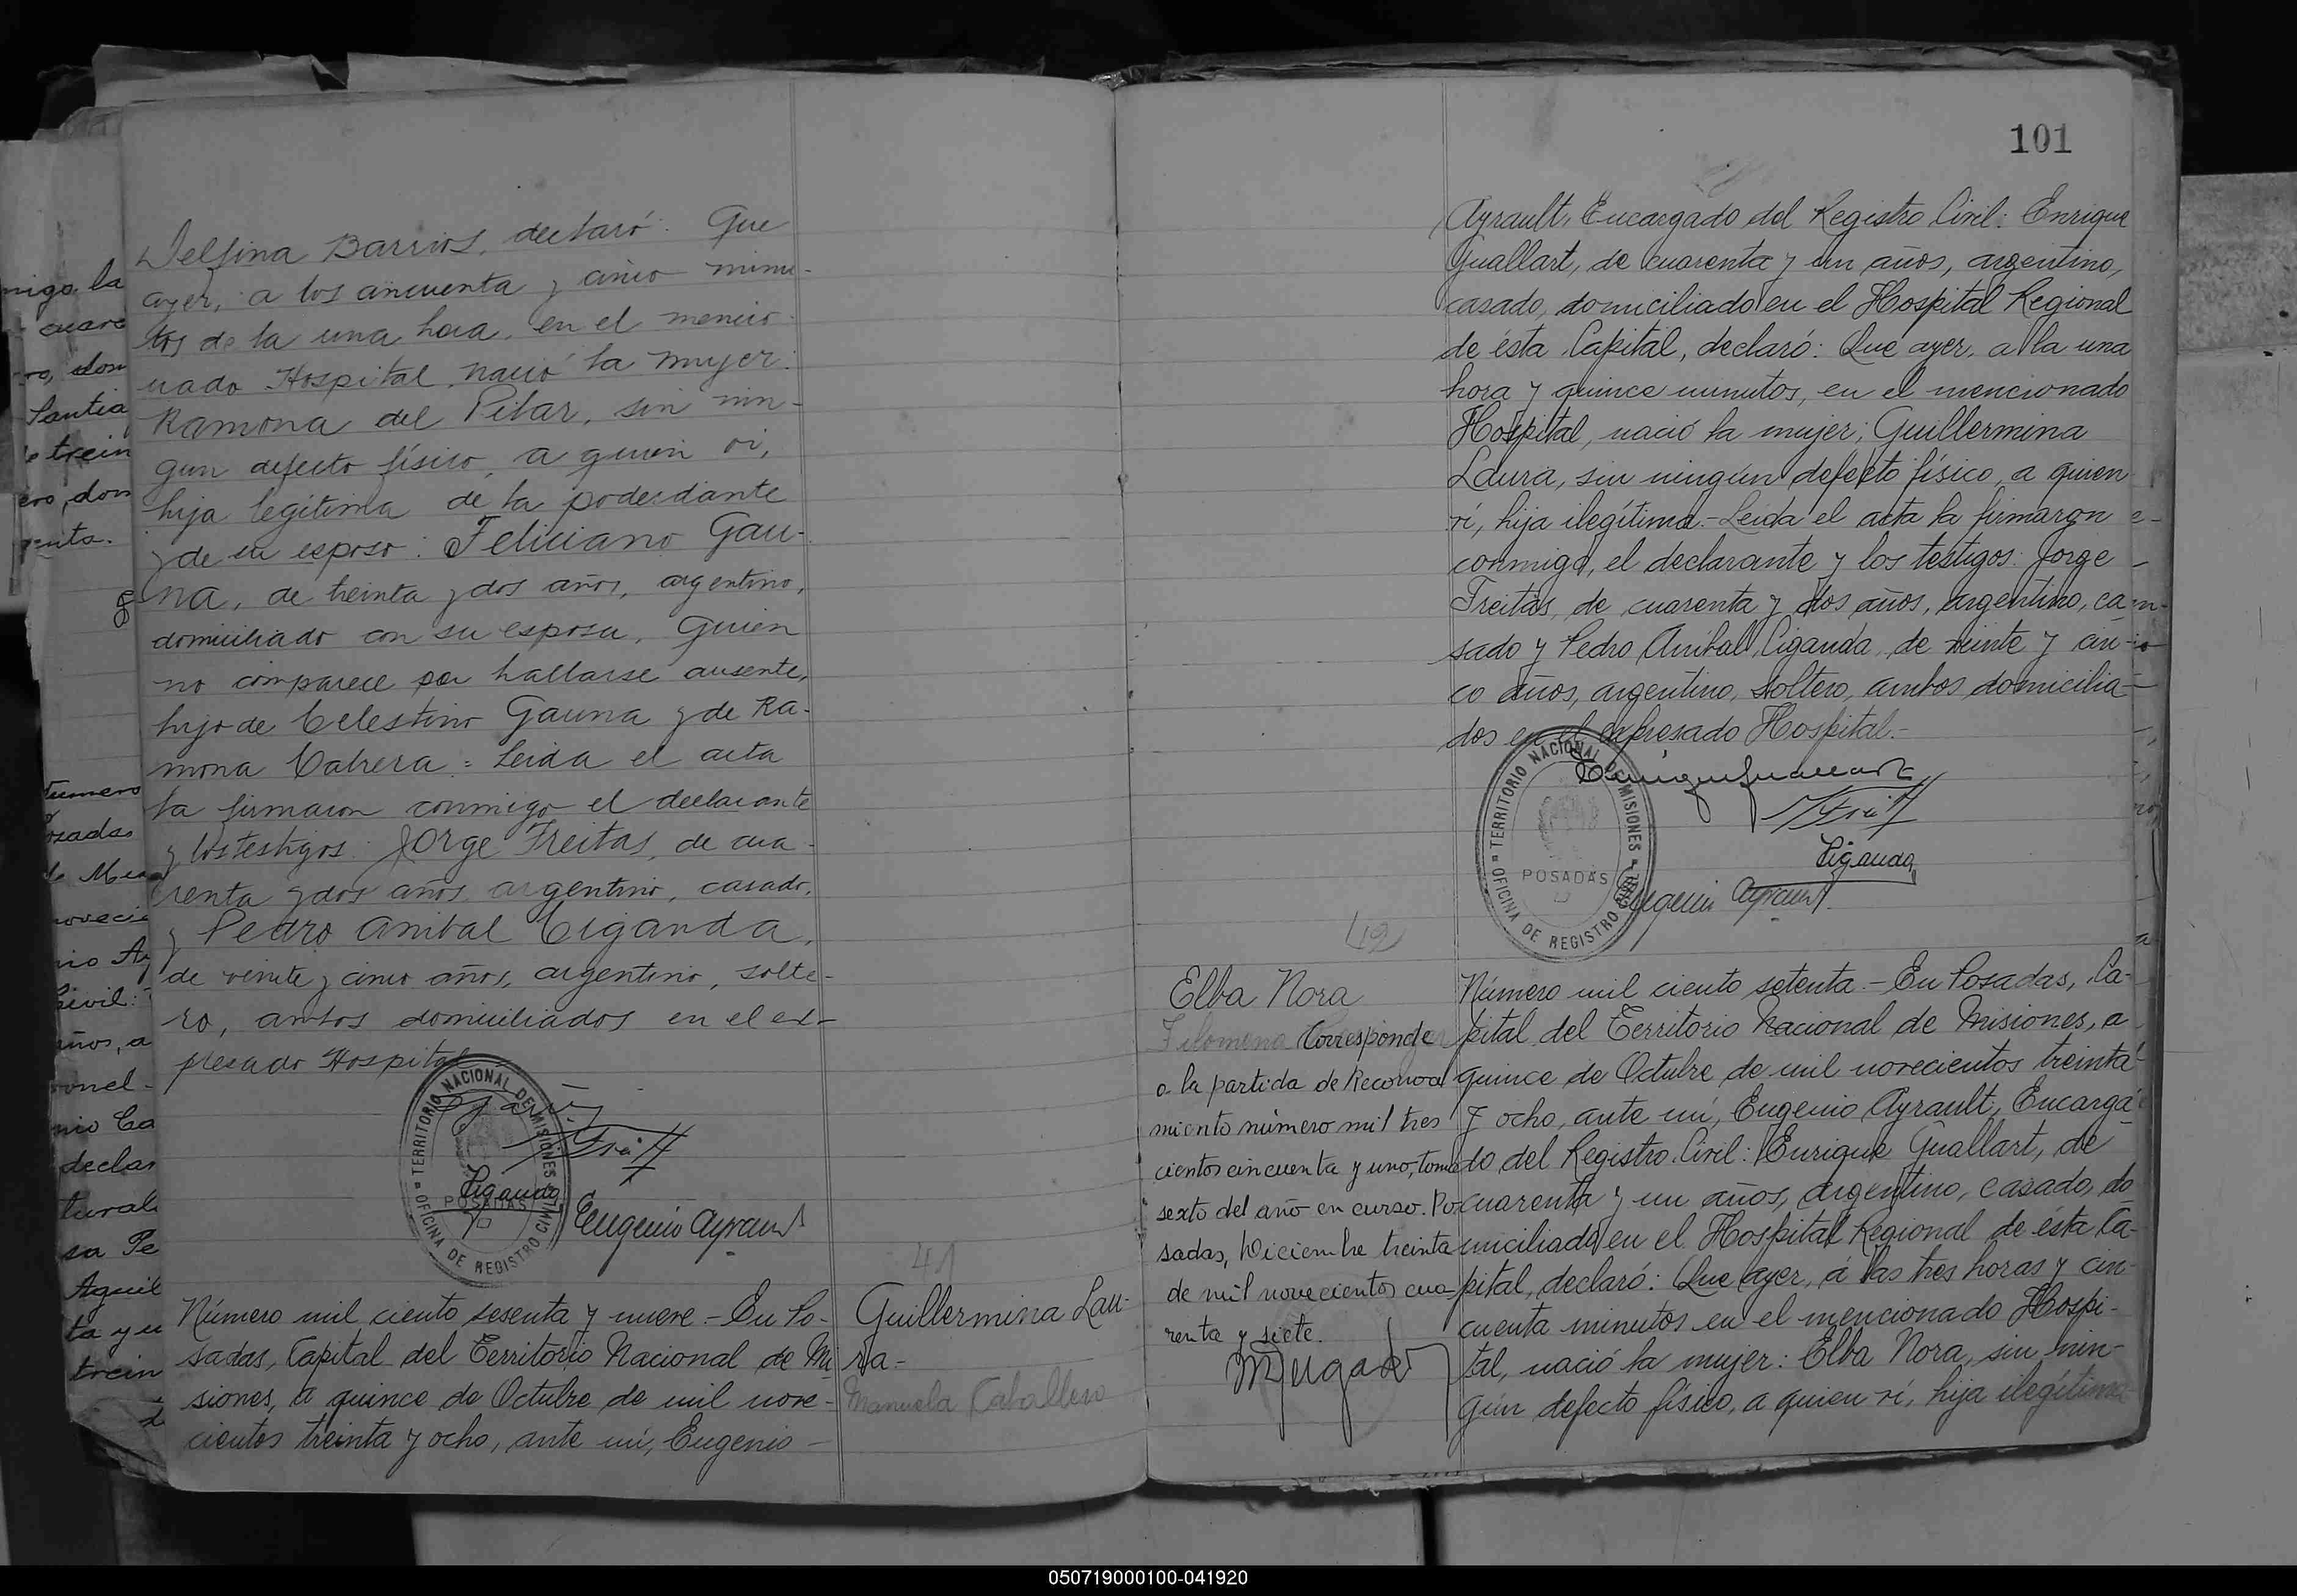 Delfina Barrios, declaró: Que
ayer, a los cincuenta y cinco minu-
tos de la una hora, en el mencio-
nado Hospital, nació la mujer:
Ramona del Pilar, sin nin-
gun defecto físico, a quien vi,
hija legítima de la poderdante
y de su esposo: Feliciano Gau-
na, de treinta y dos años, argentino,
domiciliado con su esposa, quien
no comparece por hallarse ausente,
hijo de Celestino Gauna y de Ra-
mona Cabrera = Leida el acta
la firmaron conmigo el declarante
y los testigos: Jorge Freitas, de cua-
renta y dos años, argentino, casado,
y Pedro Anibal Ciganda,
de veinte y cinco años, argentino, solte-
ro, ambos domiciliados en el ex-
presado Hospital
TERRITORIO NACIONAL DE MISIONES
POSADAS
OFICINA DE REGISTRO CIVIL
Ciganda
Eugenio Ayrault
41
Guillermina Lau-
ra-
Manuela Caballero
Número mil ciento sesenta y nueve.- En Po-
sadas, Capital del Territorio Nacional de Mi
siones, a quince de Octubre de mil nove-
cientos treinta y ocho, ante mí, Eugenio
101
Ayrault, Encargado del Registro Civil: Enrique
Guallart, de cuarenta y un años, argentino,
casado, domiciliado en el Hospital Regional
de ésta Capital, declaró: Que ayer, a la una
hora y quince minutos, en el mencionado
Hospital, nació la mujer: Guillermina
Laura, sin ningún defecto físico, a quien
ví, hija ilegítima.- Leída el acta la firmaron
conmigo, el declarante y los testigos: Jorge
Freitas, de cuarenta y dos años, argentino, ca
sado y Pedro Anibal Ciganda, de veinte y cin-
co años, argentino, soltero, ambos domicilia-
dos en el expresado Hospital.-
TERRITORIO NACIONAL DE MISIONES
POSADAS
OFICINA DE REGISTRO CIVIL
Enrique Guallart
Ciganda
Eugenio Ayrault
42
Elba Nora
Filomena Corresponde
a la partida de Reconoci
miento número mil tres
cientos cincuenta y uno, tomo
sexto del año en curso. Po
sadas, Diciembre treinta
de mil novecientos cua-
renta y siete.
Número mil ciento setenta.- En Posadas, Ca-
pital del Territorio Nacional de Misiones, a
quince de Octubre de mil novecientos treinta
y ocho, ante mí, Eugenio Ayrault, Encarga-
do del Registro Civil: Enrique Guallart, de
cuarenta y un años, argentino, casado, do
miciliado en el Hospital Regional de ésta Ca-
pital, declaró: Que ayer, a las tres horas y cin-
cuenta minutos en el mencionado Hospi-
tal, nació la mujer: Elba Nora, sin nin-
gún defecto físico, a quien ví, hija ilegítima
050719000100-041920